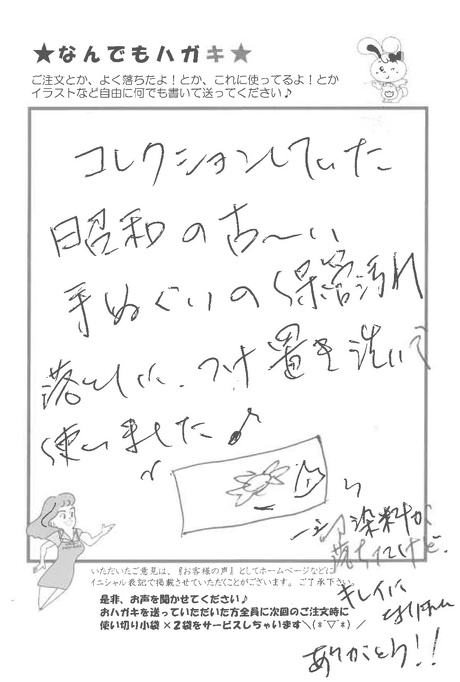 ★なんでもハガキ★
ご注文とか、よく落ちたよ！とか、これに使ってるよ！とか
イラストなど自由に何でも書いて送ってください♪
コレクションしていた
昭和の古〜い
手ぬぐいの保管汚れ
落としに、つけ置き洗いで
使いました♪
一部染料が
落ちたけど、
キレイに
なりました
ありがとう!!
いただいたご意見は、『お客様の声』としてホームページなどに
イニシャル表記で掲載させていただくことがございます。ご了承下さい。
是非、お声を聞かせてください♪
おハガキを送っていただいた方全員に次回のご注文時に
使い切り小袋×2袋をサービスしちゃいます＼(*´▽`*)／